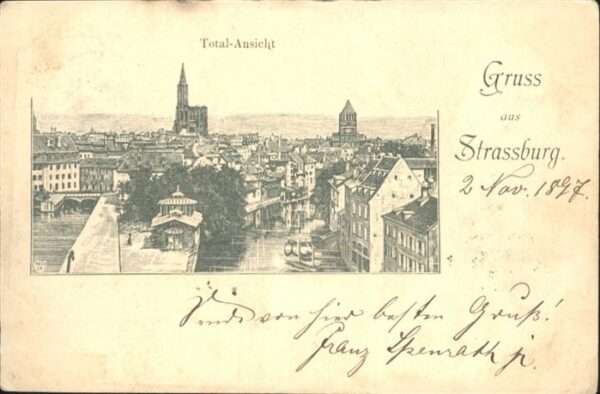 Total-Ansicht
Gruss
aus
Strassburg.
2 Nov. 1897.
Sende von hier besten Gruß!
Franz Ispenrath jr.